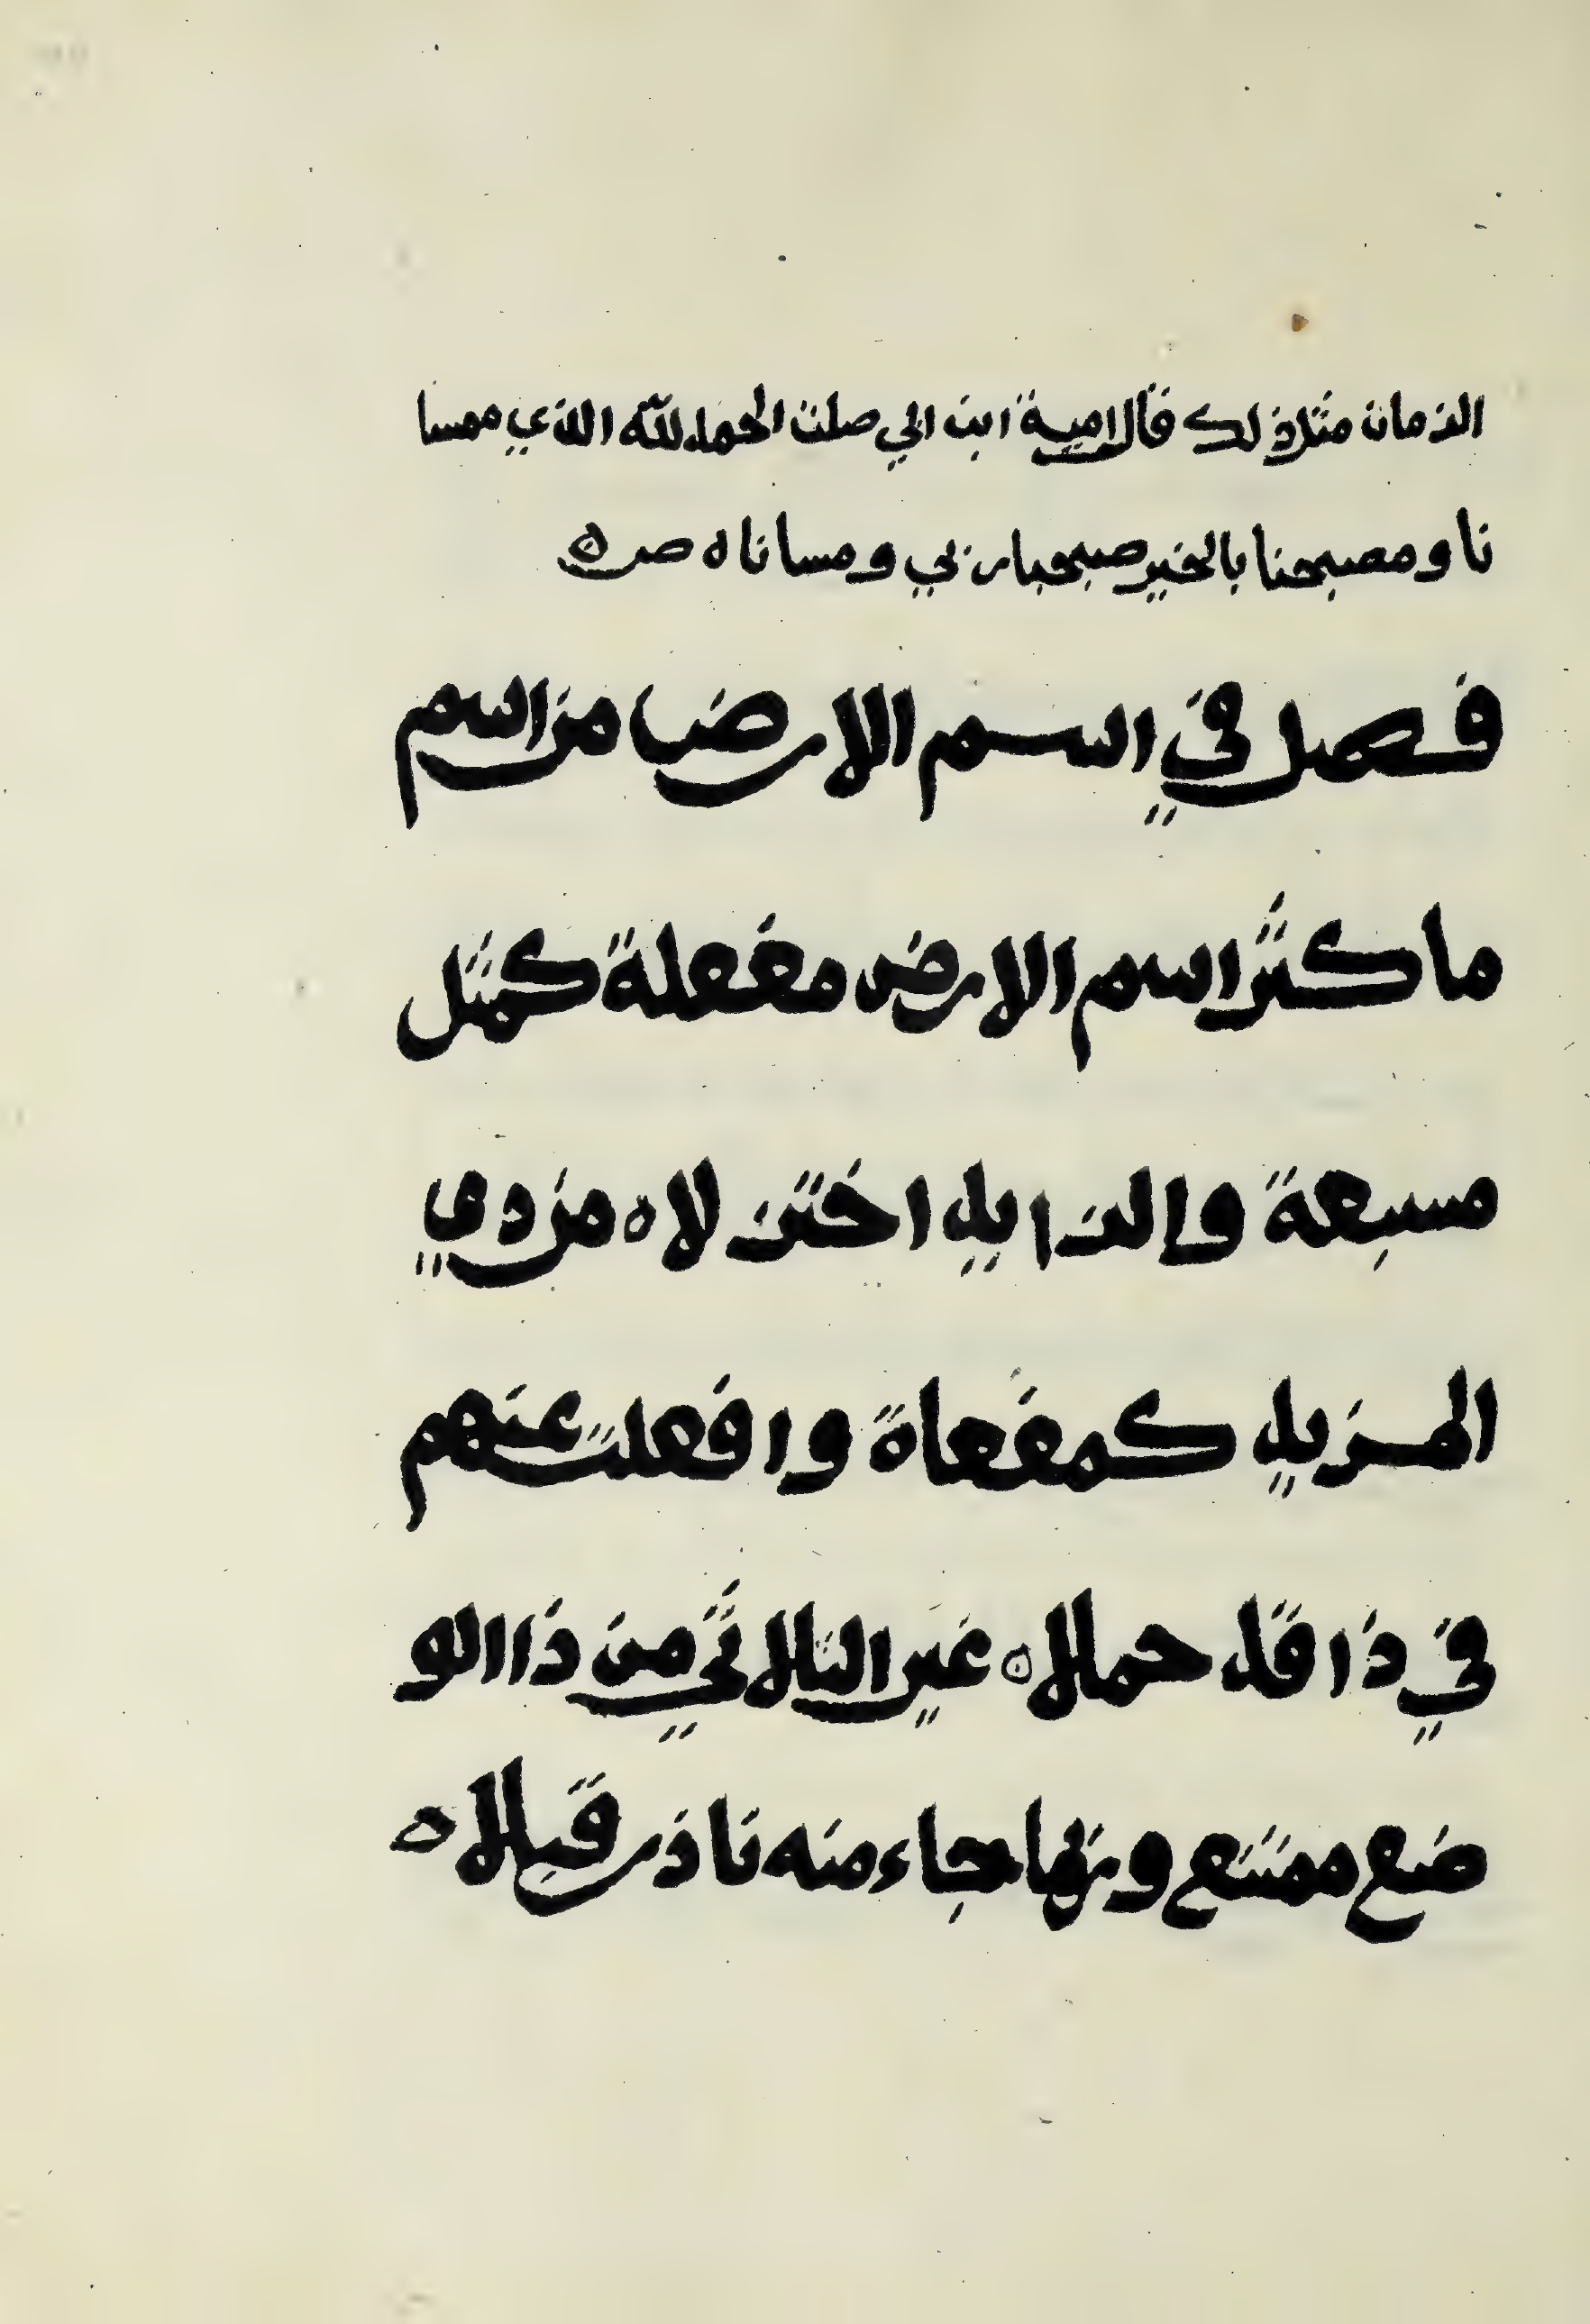 الزمان مثلذلك فال امية ابن ابي صلت الحمد لله الذي ممسا
نا و مصبحنا بالخير صبحبا ربي و مسانا ه صره
فصل في اسم الارض من اسم
ما كثر اسم الارض مفعلة كمثل
مسبعة والزايد اختزلاه من ذي
المزيد كمفعاة وافعلت عنهم
في ذا قد حملاه غير الثلاثي من ذا الو
ضع ممتنع وربما جاء منه نادر قبلاه